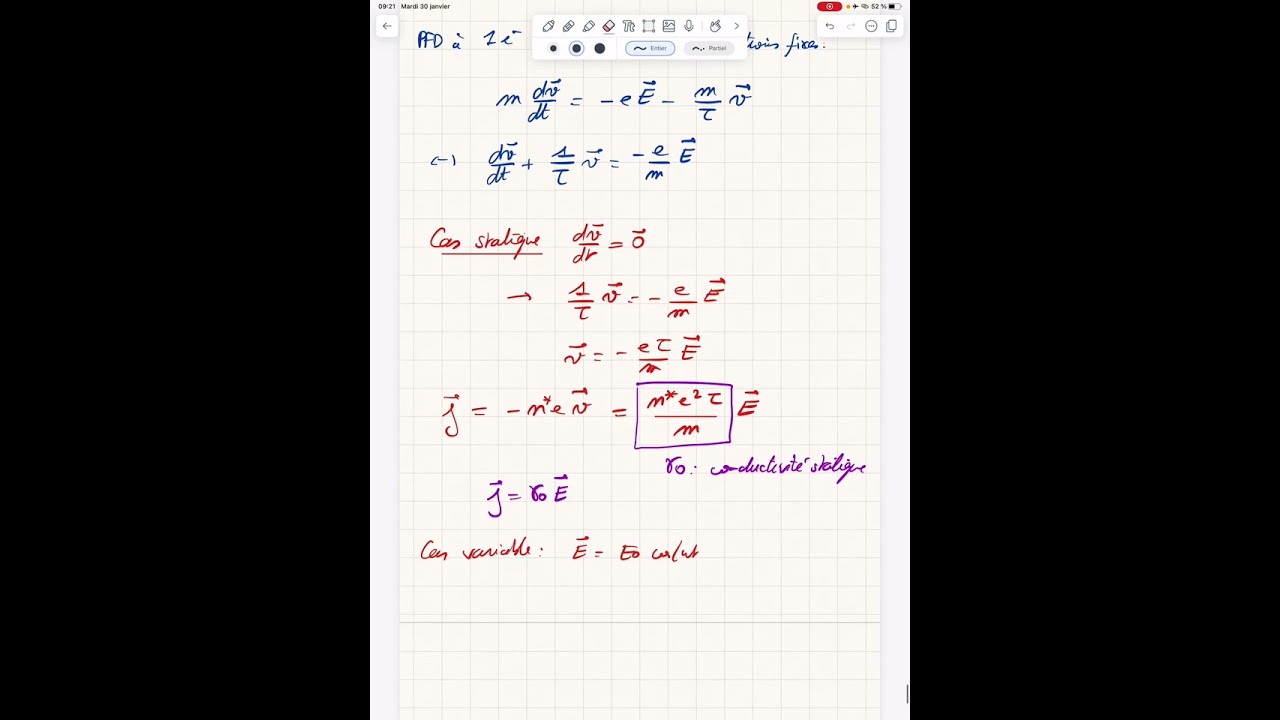 09:21 Mardi 30 janvier
52 %
PFD à 1 e⁻ fixes.
Entier
Partiel
m dv⃗/dt = - e E⃗ - m/τ v⃗
(-) dv⃗/dt + 1/τ v⃗ = -e/m E⃗
Cas statique dv⃗/dt = 0⃗
→ 1/τ v⃗ = - e/m E⃗
v⃗ = - eτ/m E⃗
j⃗ = - n* e v⃗ = n* e² τ/m E⃗
γ0 : conductivité statique
j⃗ = γ0 E⃗
Cas variable : E⃗ = E0 cos(wt